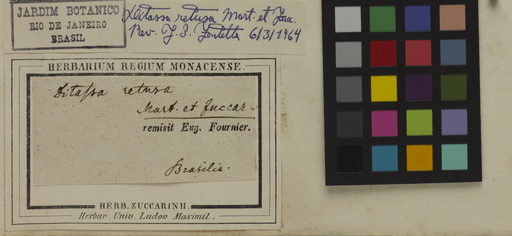 JARDIM BOTANICO
RIO DE JANEIRO
BRASIL
Ditassa retusa Mart. et Zuc.
Rev. J. S. Fontella 6/3/1964
HERBARIUM REGIUM MONACENSE.
Ditassa retusa
Mart. et Zuccar.
remisit Eug. Fournier.
Brasilia.
HERB. ZUCCARINII.
Herbar. Univ. Ludov. Maximil.